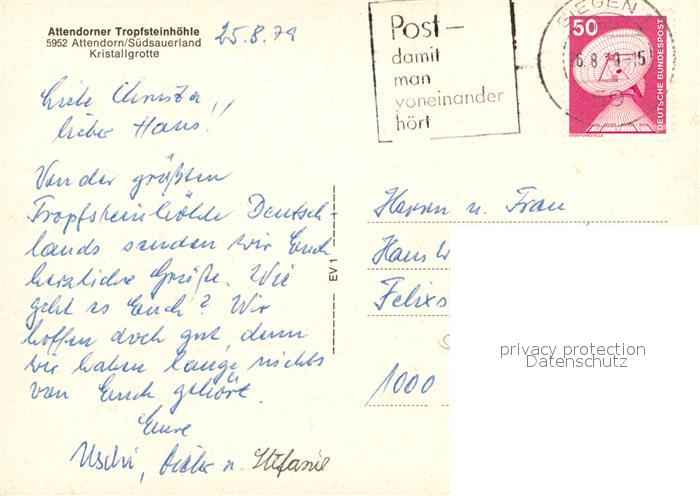 Attendorner Tropfsteinhöhle
5952 Attendorn/Südsauerland
Kristallgrotte
25.8.79
Post –
damit
man
voneinander
hört
SIEGEN
6.8.79-15
50
DEUTSCHE BUNDESPOST
ERDFUNKSTELLE
Liebe Christa,
lieber Hans!!
Von der größten
Tropfsteinhöhle Deutsch-
lands senden wir Euch
herzliche Grüße. Wie
geht es Euch? Wir
hoffen doch gut, denn
wir haben lange nichts
von Euch gehört.
Eure
Uschi, Dieter u. Stefanie
EV 1
Herrn u. Frau
Hans W
Felixs
1000
privacy protection
Datenschutz